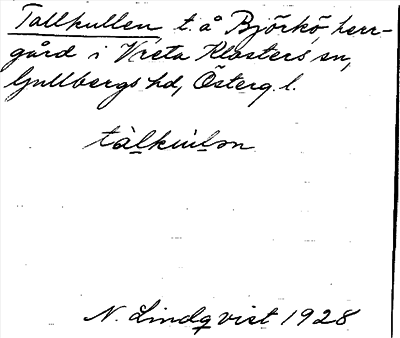 Tallkullen t. å Björkö herr-
gård i Vreta Klosters sn,
Gullbergs hd, Österg. l.
tàlkùlən
N. Lindqvist 1928